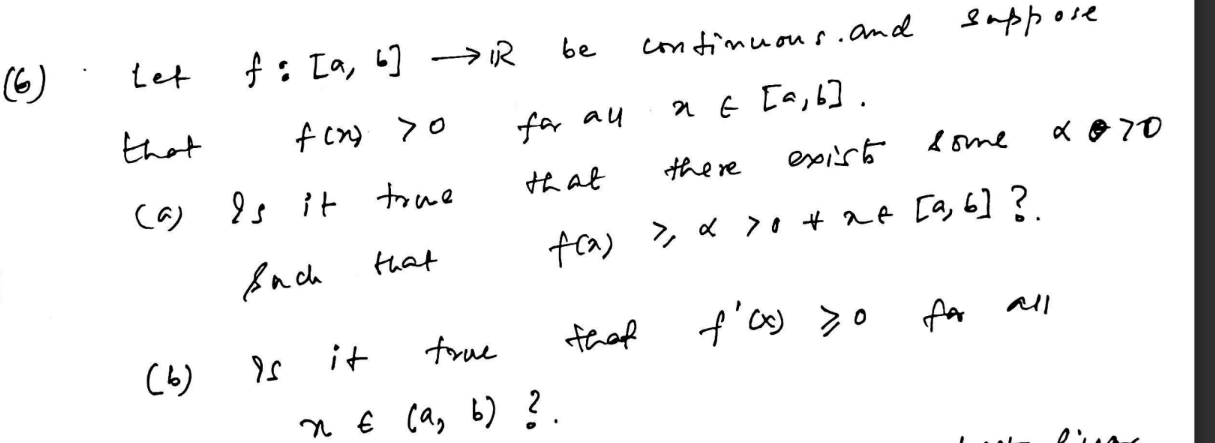 (6) Let f : [a, b] → ℝ be continuous. and suppose
that f(x) > 0 for all x ∈ [a, b].
(a) Is it true that there exist some α > 0
such that f(x) ≥ α > 0 ∀ x ∈ [a, b] ?.
(b) Is it true that f'(x) ≥ 0 for all
x ∈ (a, b) ?.